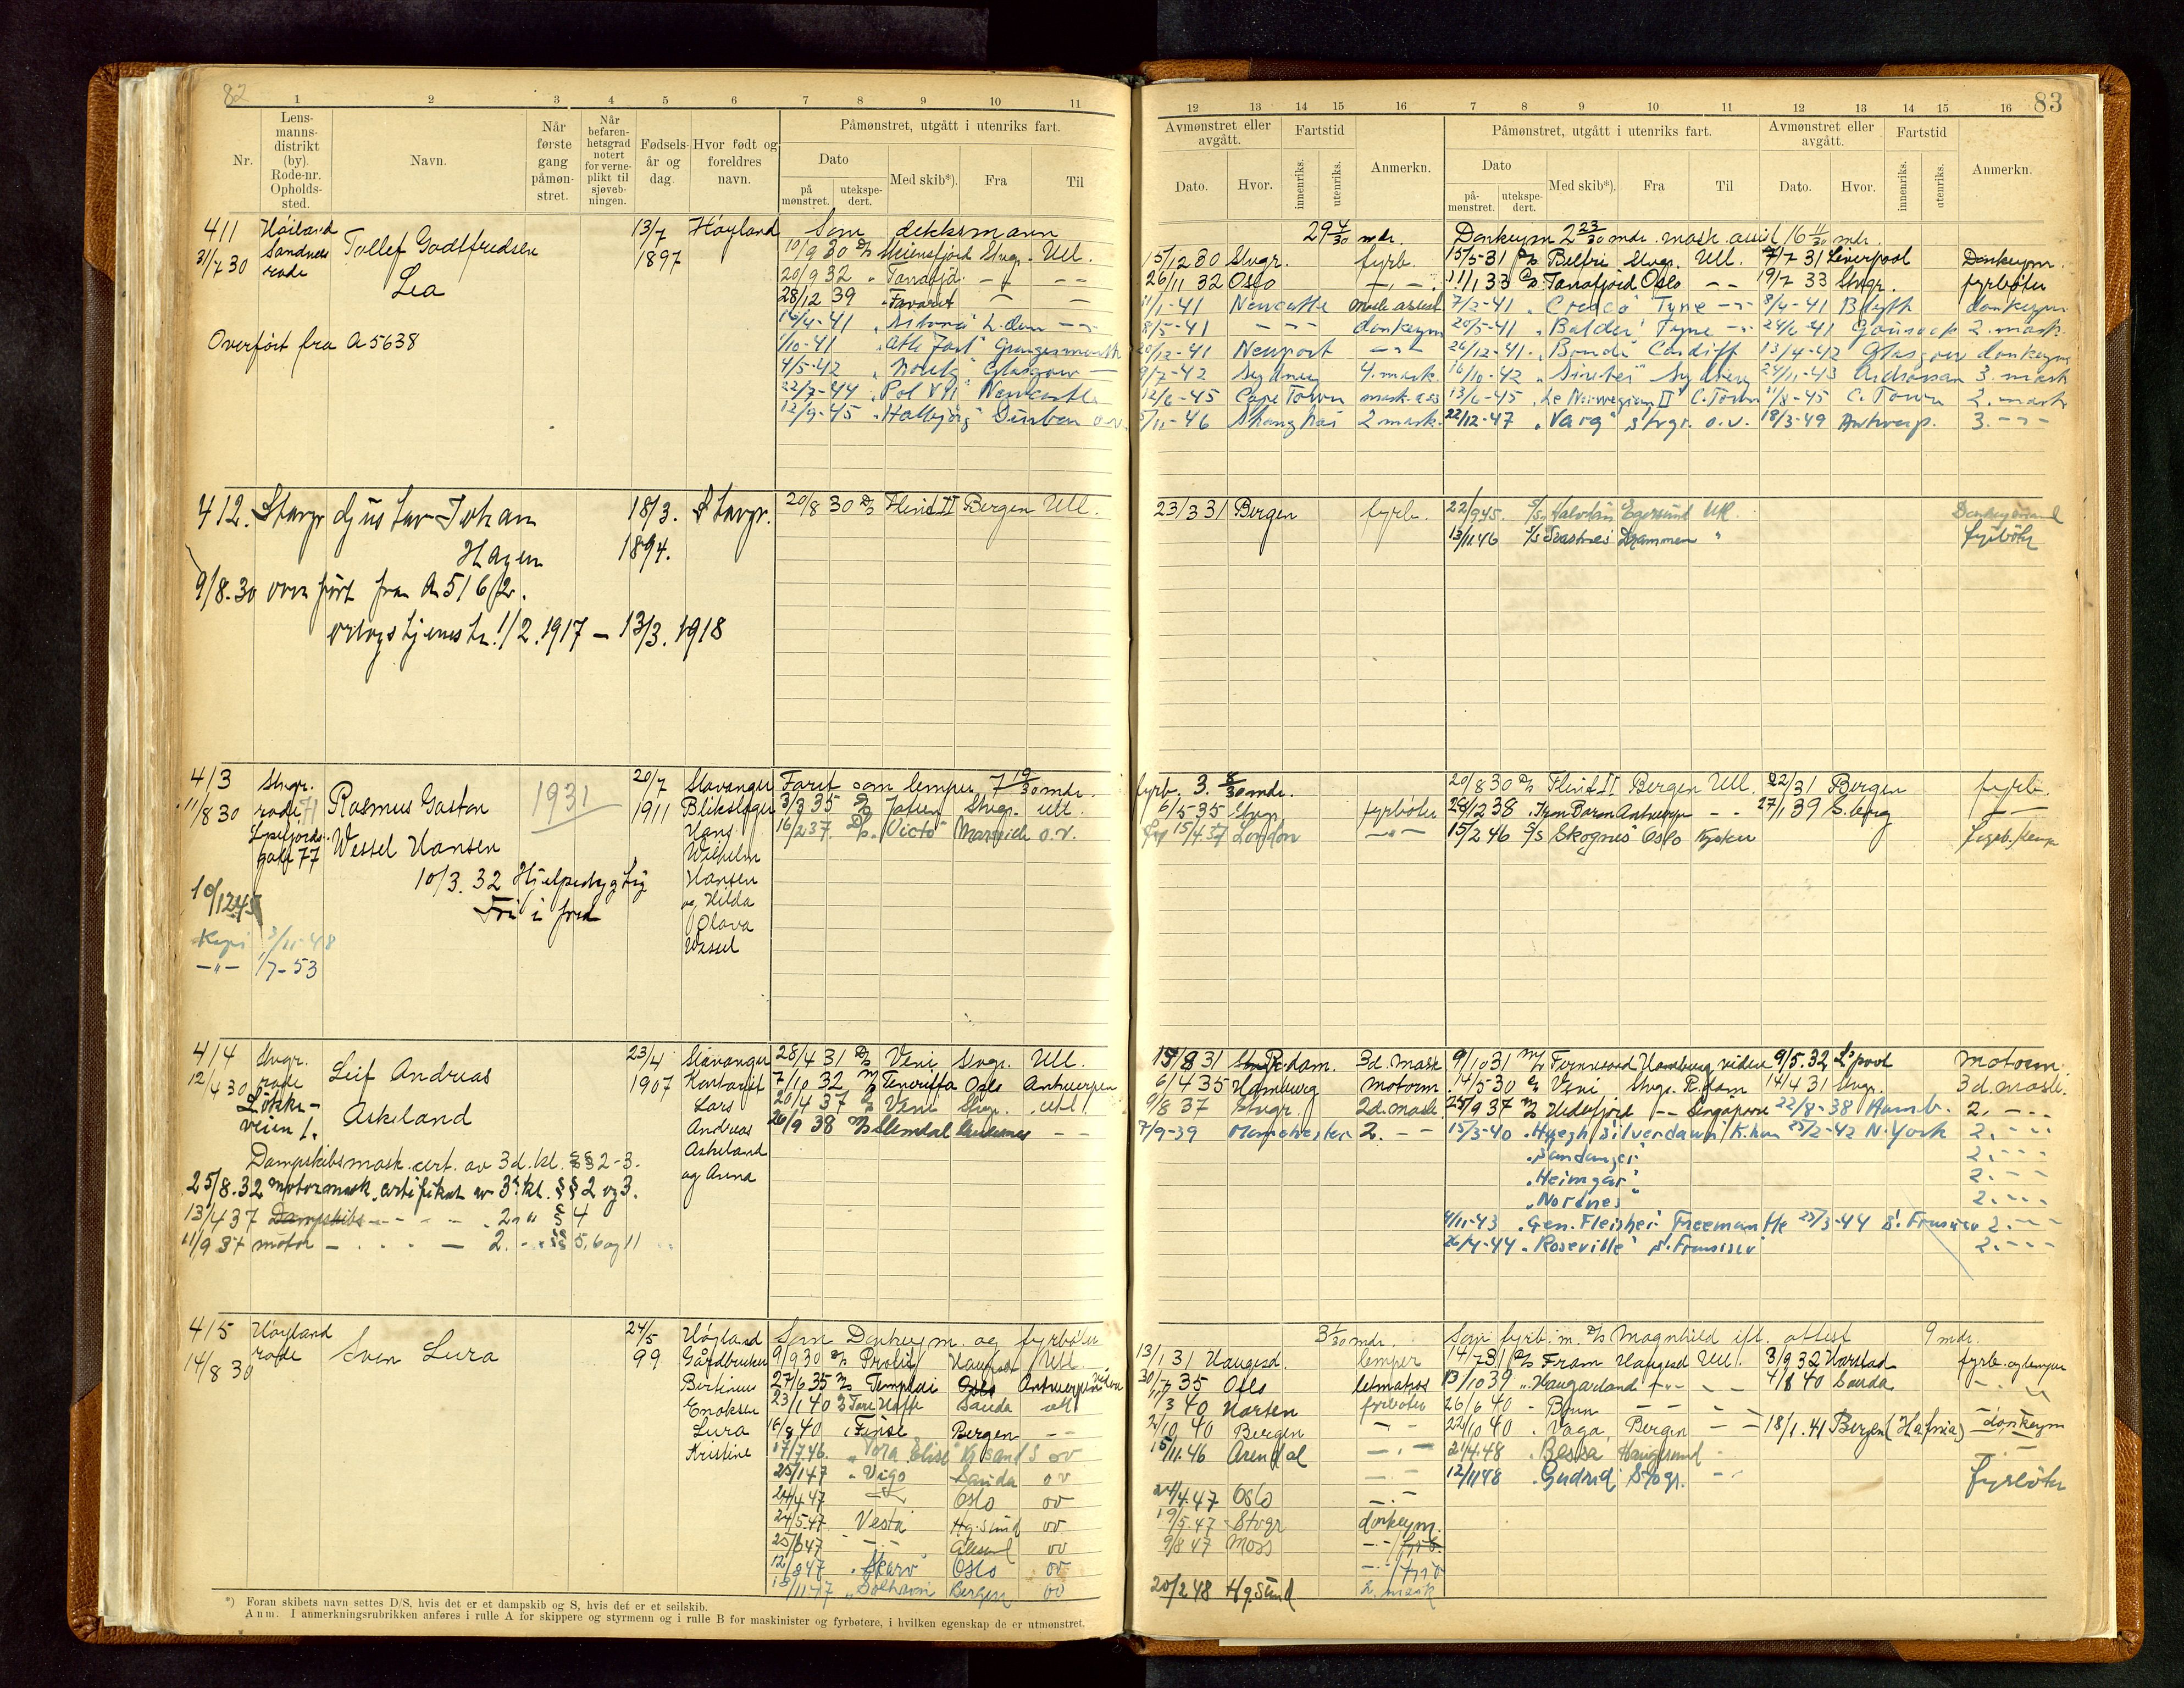 82
1 2 3 4 5 6 7 8 9 10 11
Nr.
Lens-
manns-
distrikt
(by).
Rode-nr.
Opholds-
sted.
Navn.
Når
første
gang
påmøn-
stret.
Når
befaren-
hetsgrad
notert
for verne-
plikt til
sjøveb-
ningen.
Fødsels-
år og
dag.
Hvor født og
foreldres
navn.
Påmønstret, utgått i utenriks fart.
Dato
på
mønstret.
utekspe-
dert.
Med skib*).
Fra
Til
411 Høiland 13/7 Høyland Som dekksmann
31/7 30 Sandnes rode Tollef Godtfredsen Lea 1897
10/9 30 D/S Meiensfjord Stvgr. Utl.
20/9 32 " Tanafjd — —
28/12 39 " Favorit — —
16/4-41 " Astoria L.don —"—
1/10-41 "Atle Jarl" Grangesmouth
4/5-42 " Norefj" Glasgow —
22/7-44 "Pol VII" Newcastle
12/9-45 "Hallbjørg" Durban o.v.
Overført fra A 5638
412. Stavgr Gustav Johan 18/3. Stavgr. 20/8 30 D/S Flint II Bergen Utl.
Hagen 1894.
9/8.30 overført fra A 5162.
orlogstjeneste 1/2.1917 – 13/3.1918
413 Stvgr. 20/7 Stavanger Faret som lemper 7 19/30 mdr.
11/8 30 rode 71 Rasmus Gaston 1931 1911 Blikslager 3/3 35 D/S Jatun Stvgr. Utl.
Lysefjords- Wessel Hansen Hans 16/2 37. D/S "Victo" Marvik o.v.
gate 77 Wilhelm
10/3. 32 Hjelpedygtig Hansen
Fri i fred og Hilda
10/12 45 Olava
Kopi 3/11-48 Wessel
—"— 1/7-53
414 Stvgr. 23/4 Stavanger 28/4 31 D/S Veni Stvgr. Utl.
12/4 30 rode Leif Andreas 1907 Kontorist 7/10 32 M/S Teneriffa Oslo Antwerpen
Løkke- Askeland Lars 20/4 37 D/S Veni Stvgr. Utl.
veien 1. Andreas 26/9 38 M/S Slemdal — —
Askeland
og Anna
Dampskibsmask.cert. av 3d. kl. §§ 2-3.
25/8.32 motormask.certifikat av 3. kl. §§ 2 og 3.
13/4 37 Dampskibs — - - - . 2 " " § 4
11/9 37 motor — . . . — 2. - . §§ 5, 6 og 11
415 Høyland 24/5 Høyland Som Donkeym. og fyrbøter
14/8 30 rode Sven Lura 99 Gårdbruker 9/9 30 D/S Probus Haugesd Utl.
Bertinius 27/6 35 M/S Templar Oslo Antwerpen videre
Enoksen 23/1 40 D/S Tore Hafte Sauda utl
Lura 16/8 40 " Finse Bergen — —
Kristine 17/7 46. " Tora Elise" Kr.sand S ov
25/1 47 " Vigo Sauda ov
24/4 47 —"— Oslo ov
24/5 47 Vesta Hg.sund ov
25/6 47 —"— Ålesund ov
12/8 47 " Skarv" Oslo ov
13/11 47 "Solhavn Bergen ov
*) Foran skibets navn settes D/S, hvis det er et dampskib og S, hvis det er et seilskib.
Anm. I anmerkningsrubrikken anføres i rulle A for skippere og styrmenn og i rulle B for maskinister og fyrbøtere, i hvilken egenskap de er utmønstret.
83
12 13 14 15 16 7 8 9 10 11 12 13 14 15 16
Avmønstret eller
avgått.
Dato. Hvor.
Fartstid
innenriks.
utenriks.
Anmerkn.
Påmønstret, utgått i utenriks fart.
Dato
på-
mønstret.
utekspe-
dert.
Med skib*). Fra Til
Avmønstret eller
avgått.
Dato. Hvor.
Fartstid
innenriks.
utenriks.
Anmerkn.
29 4/30 mdr. Donkeym 2 23/30 mdr. mask. assist 16 11/30 mdr.
15/12 30 Stvgr. fyrb. 15/5-31 D/S Belfri Stvgr. Utl. 7/7 31 Liverpool Donkeym.
26/11 32 Oslo —"— 11/1 33 D/S Tanafjord Oslo — — 19/7 33 Stvgr. fyrbøter
11/1-41 Newcastle mask assist 7/2-41 Tyne —"— 8/4-41 Blyth donkeym
8/5-41 —"— donkeym 20/5-41 "Balder" Tyne —"— 24/6-41 Gourock 2. mask
20/12-41 Newport —"— 26/12-41. "Bonde" Cardiff 13/4-42 Glasgow donkeym
9/7-42 Sydney 4. mask. 16/10-42 Sydney 24/11-43 Ardrossan 3. mask
12/6-45 Cape Town mask. ass 13/6-45 "Le Norwegian II" C. Town 11/8-45 C. Town 2. mask
5/11-46 Shanghai 2 mask. 22/12-47 "Varg" Stvgr. o.v. 18/3-49 Antwerp. 3. —"—
23/3 31 Bergen fyrb. 22/9 45. S/S. Halvdan Egersund Utl. Donkeymand
13/11 46 S/S Svartnes Drammen " fyrbøter
fyrb. 3. 8/30 mdr. 20/8 30 D/S Flint II Bergen Utl. 22/31 Bergen fyrb.
6/5-35 Stvgr. fyrbøter 28/12 38 "Iron Baron Antwerpn — - 27/1 39 S.borg —"—
15/4.37 London —"— 15/2 46 S/S "Skognes" Oslo Kysten fyrb./lemp
15/8 31 R.dam. 3d. mask 9/10 31 M/S Fernwood Hamburg videre 9/5.32 L'pool motorm.
6/4 35 Hamburg motorm. 14/5-30 D/S Veni Stvgr. R.dam 14/4 31 Stvgr. 3d. mask.
9/8 37 Stvgr. 2d. mask 25/9 37 M/S Hidlefjord — Singapore 22/8-38 Hamb. 2. - - -
7/9-39 Manchester 2. - - 15/3-40 "Høegh Silverdawn" K.hvn 25/2-42 N. York 2. - - -
"Sandanger" 2. - - -
"Heimgar" 2. - - -
"Nordnes" 2. - - -
4/11-43 "Gen. Fleisher" Freemantle 25/3-44 S. Fransisco 2. - - -
26/4-44 "Roseville" S. Fransisco 2. - - -
3 1/30 mdr. Som fyrb. m. D/S Magnhild ifl. attest 9 mdr.
13/1 31 Haugesd. lemper 14/7 31 D/S Fram Haugesd Utl. 3/9 32 Harstad fyrb. og lemper
30/7 35 Oslo letmatros 13/10 39 " Haugarland —"— — 4/8 40 Sauda —"—
1/3 40 Horten fyrbøter 26/6 40 - — — —
2/10 40 Bergen —"— 22/10 40 " Vaga Bergen — — 18/1. 41 Bergen (Hafnia) donkeym
15/11.46 Arendal —"— 21/4.48 " Bessa Haugesund - —"—
—"— 12/11 48 " Gudrid Stvgr. -"- fyrbøter
24/4.47 Oslo —"—
19/5.47 Stvgr donkeym.
9/8 47 Moss —"— fyrb.
—"— fyrb
20/2 48 Hg.sund 2. mask